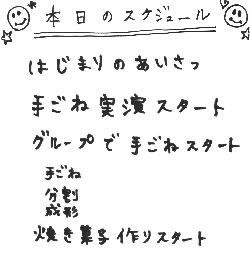 本日のスケジュール
はじまりのあいさつ
手ごね実演スタート
グループで手ごねスタート
手ごね
分割
成形
焼き菓子作りスタート